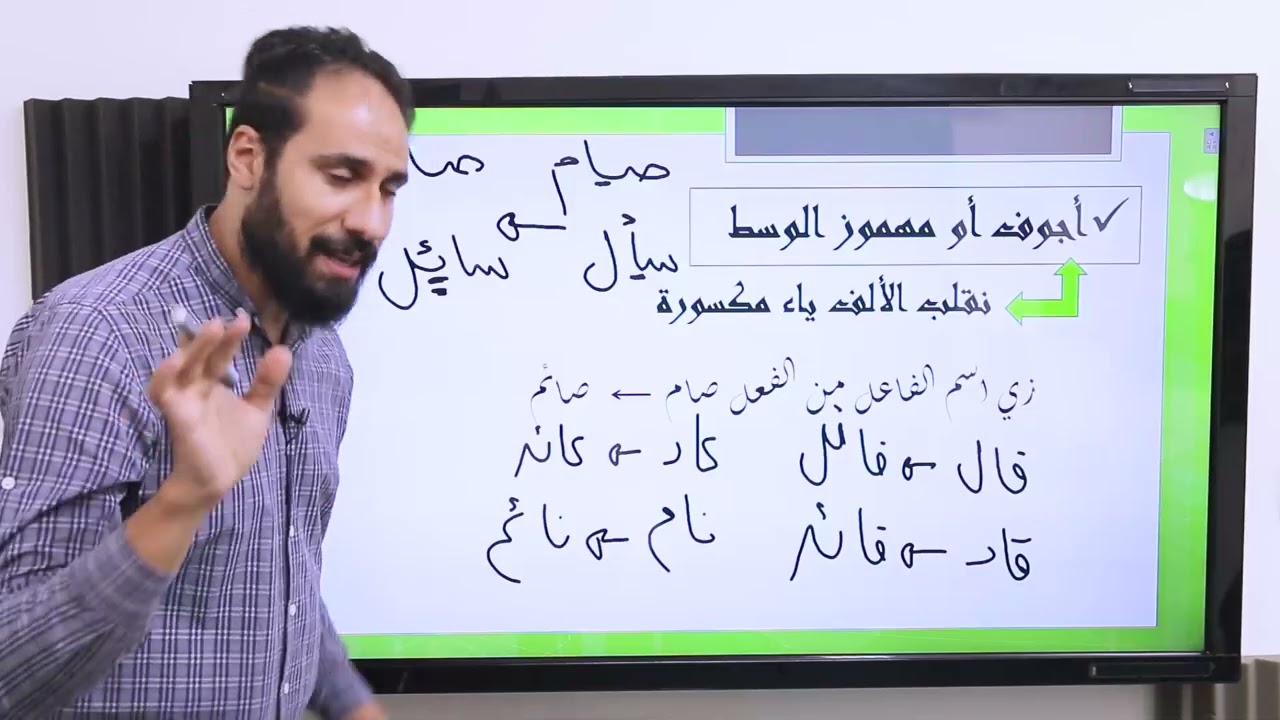 صيام صا
✓ أجوف أو مهموز الوسط
سأل ← سائل
نقلب الألف ياء مكسورة
زي اسم الفاعل من الفعل صام ← صائم
قال ← قائل عاد ← عائد
قاد ← قائد نام ← نائم